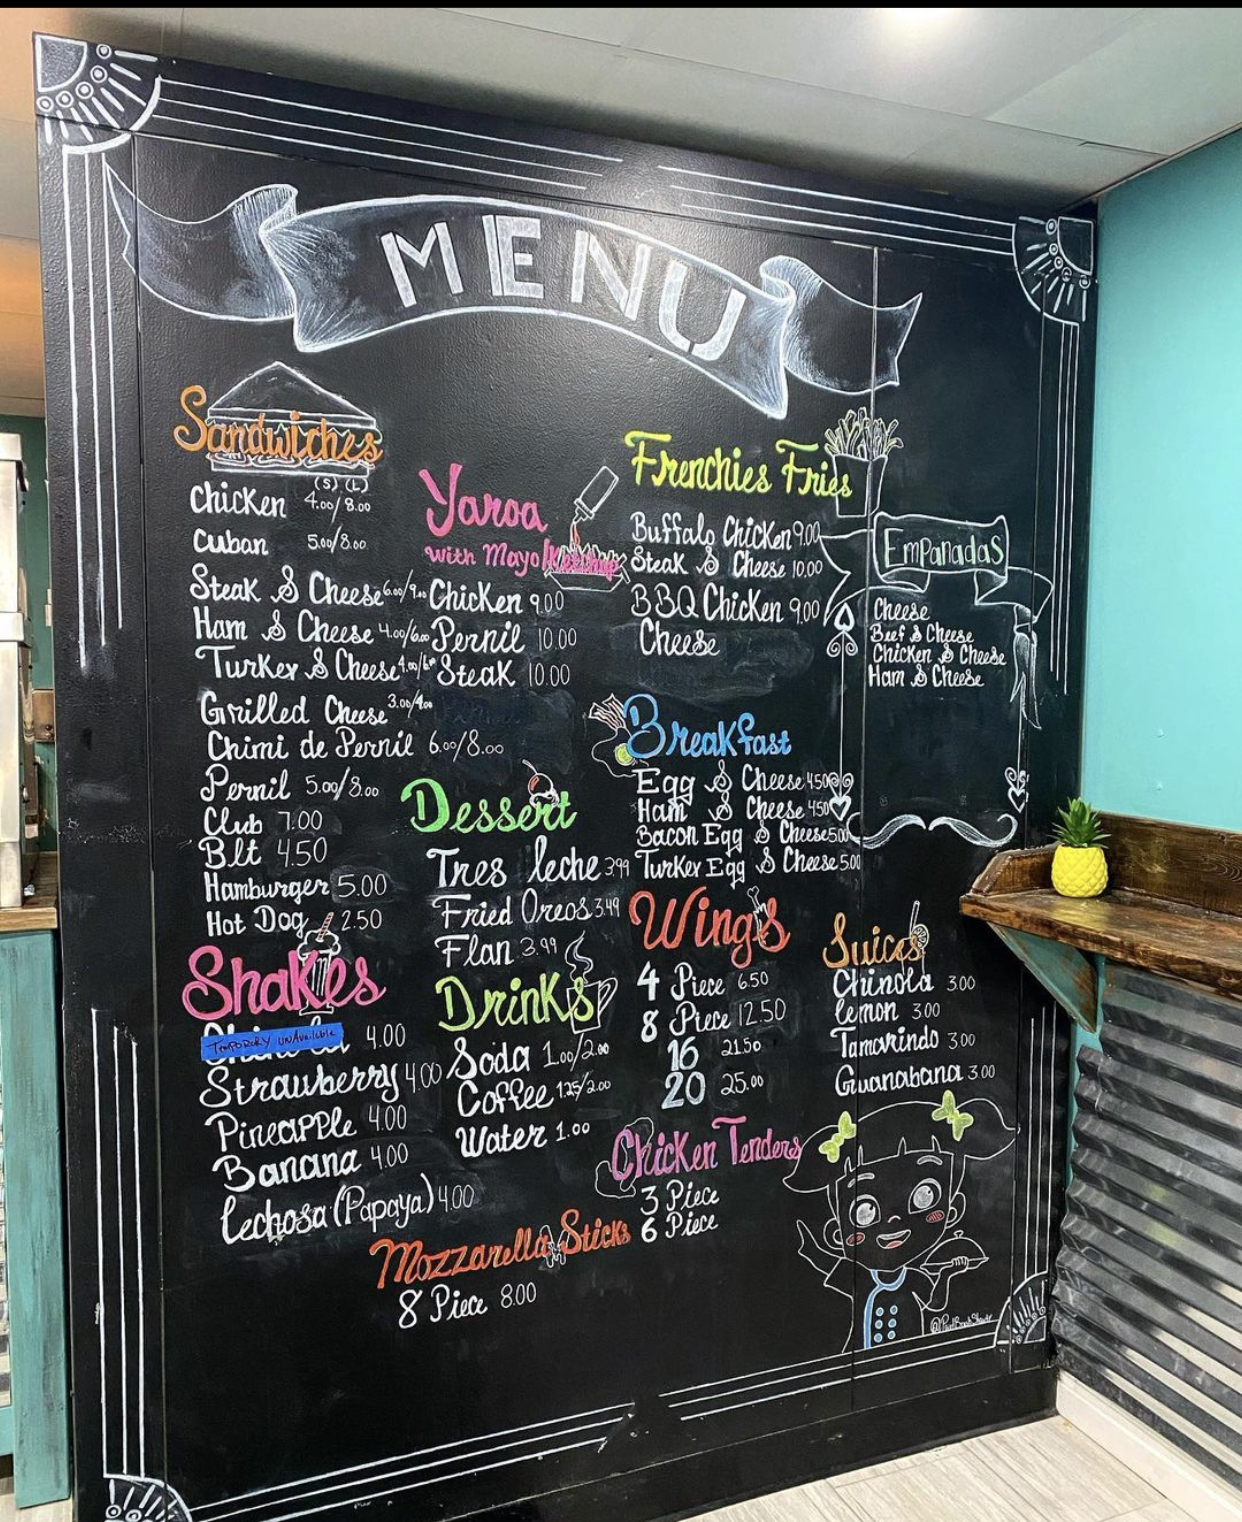 MENU
Sandwiches
(S) (L)
Chicken 4.00/8.00
Cuban 5.00/8.00
Steak & Cheese 6.00/9.00
Ham & Cheese 4.00/6.00
Turkey & Cheese 4.00/6
Grilled Cheese 3.00/4.00
Chimi de Pernil 6.00/8.00
Pernil 5.00/8.00
Club 7.00
Blt 4.50
Hamburger 5.00
Hot Dog 2.50
Shakes
Temporory unavailable 4.00
Strawberry 4.00
Pineapple 4.00
Banana 4.00
Lechosa (Papaya) 4.00
Yaroa
with Mayo/Ketchup
Chicken 9.00
Pernil 10.00
Steak 10.00
Dessert
Tres leche 3.99
Fried Oreos 3.49
Flan 3.99
Drinks
Soda 1.00/2.00
Coffee 1.25/2.00
Water 1.00
Mozzarella Sticks
8 Piece 8.00
Frenchies Fries
Buffalo Chicken 9.00
Steak & Cheese 10.00
BBQ Chicken 9.00
Cheese
Breakfast
Egg & Cheese 4.50
Ham & Cheese 4.50
Bacon Egg & Cheese 5.00
Turkey Egg & Cheese 5.00
Wings
4 Piece 6.50
8 Piece 12.50
16 21.50
20 25.00
Chicken Tenders
3 Piece
6 Piece
Empanadas
Cheese
Beef & Cheese
Chicken & Cheese
Ham & Cheese
Juices
Chinola 3.00
lemon 3.00
Tamarindo 3.00
Guanabana 3.00